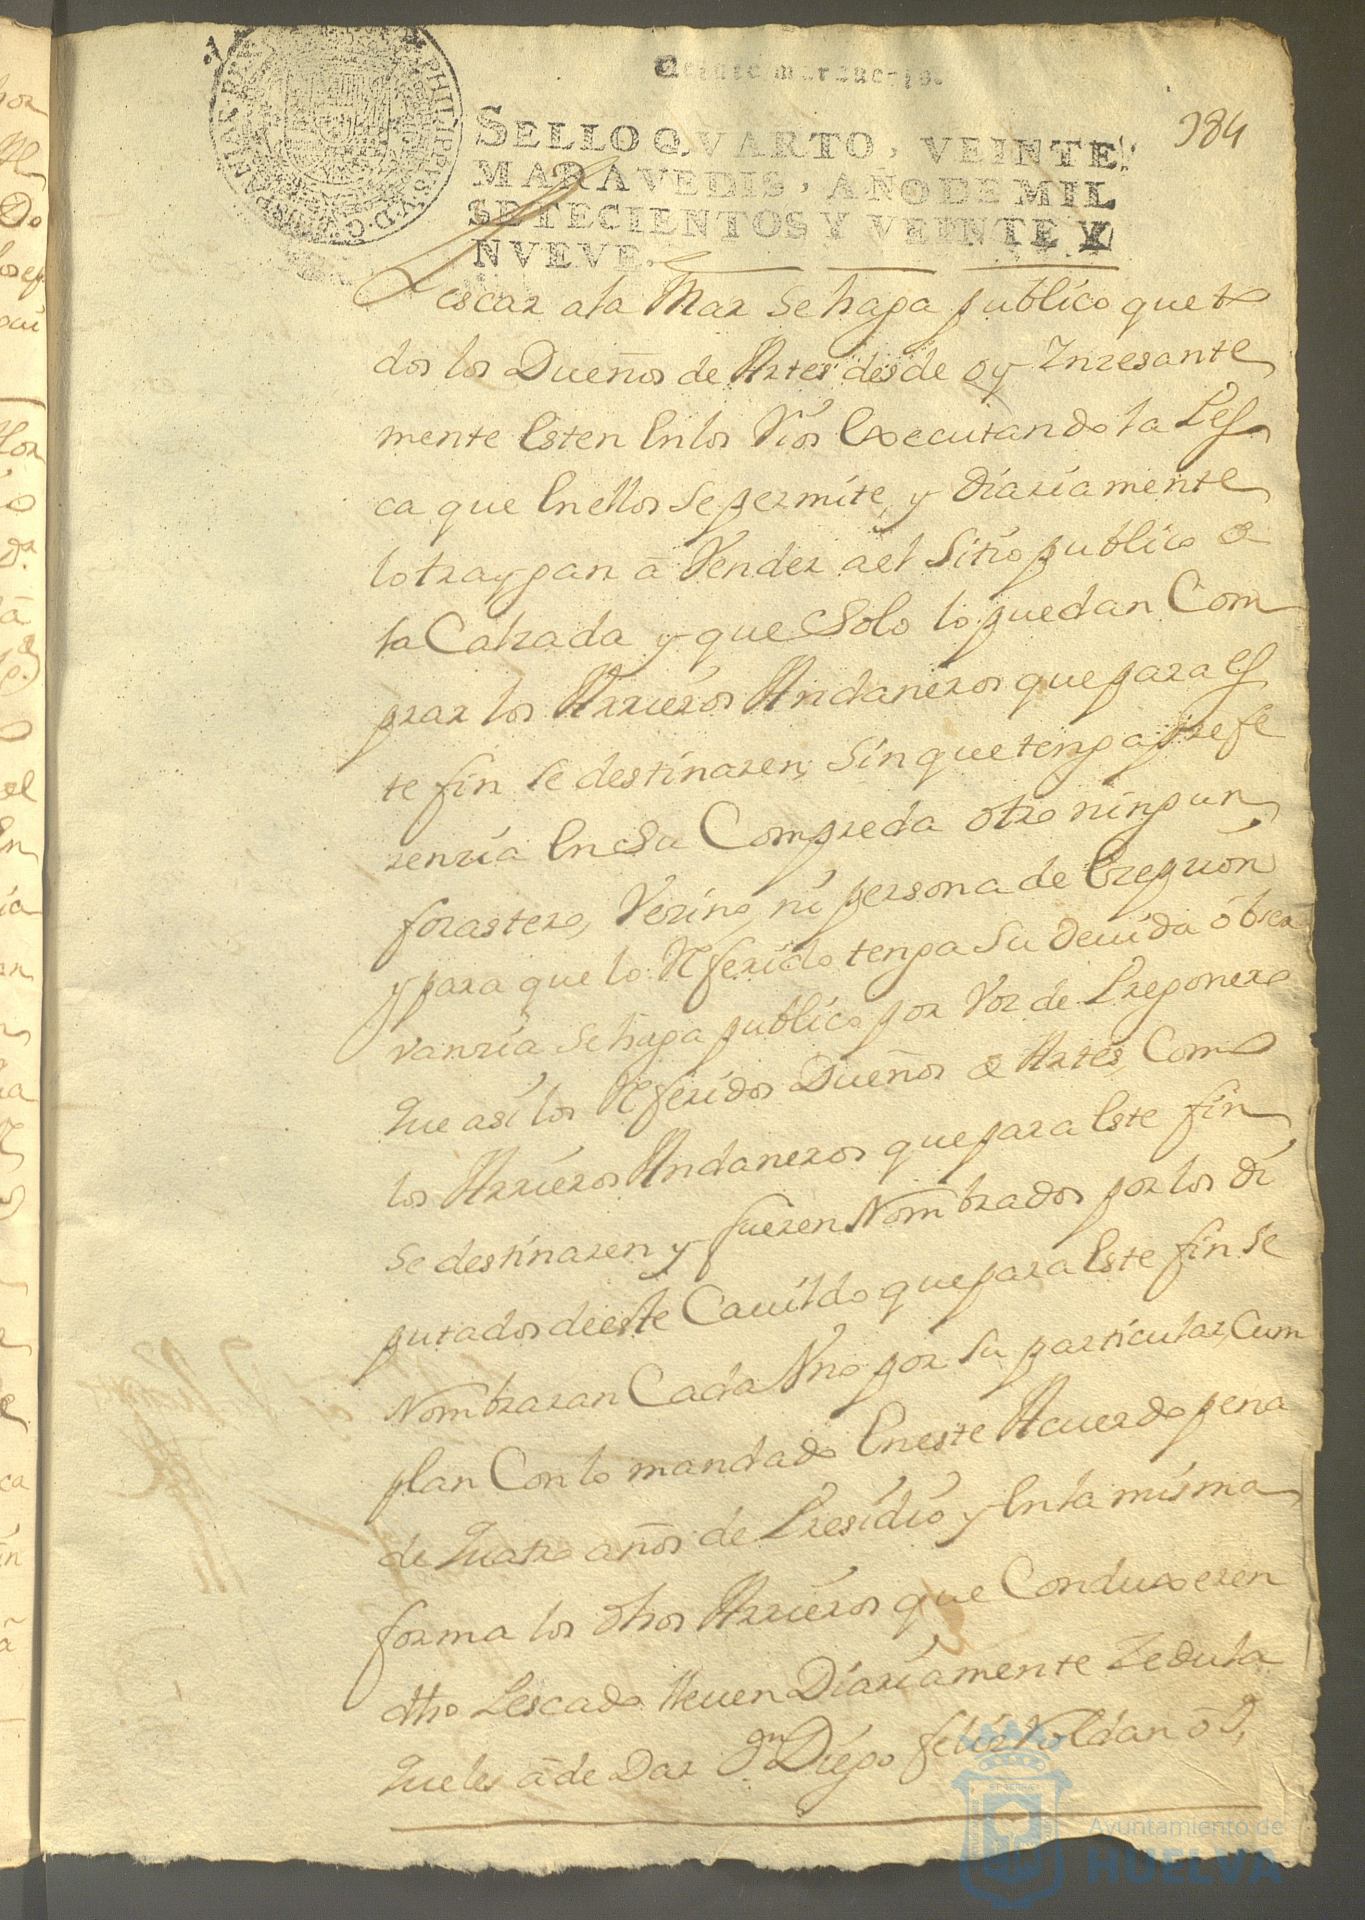 Veinte maravedis.
384
SELLO QVARTO, VEINTE
MARAVEDIS, AÑO DE MIL
SETECIENTOS Y VEINTE Y
NVEVE.
Pescar ala Mar se haga publico que to
dos los Dueños de Artes desde oy Inzesante
mente Esten En los Rios Executando la Pes
ca que En ellos se permite, y diariamente
lo traygan â Vender a el Sitio publico de
la Calzada y que Solo lo puedan Com
prar los Arrieros Andaneros que para es
te fin se destinaren, sin que tenga prefe
renzia En su Compreda otro ningun
forastero, Vezino, ni persona de Exepzion
y para que lo Referido tenga su devida obser
vanzia se haga publico por Voz de Pregonero
que asi los Referidos Dueños de Artes, Como
los Arrieros Andaneros que para Este fin
se destinaren y fueren Nombrados por los di
putados de este Cavildo que para Este fin se
Nombraran Cada Vno por su particular, Cum
plan Con lo mandado En este Acuerdo pena
de quatro años de Presidio y En la misma
forma los otros Arrieros que Conduxeren
dho Pescado lleven Diariamente Zedula
que les â de Dar Dn Diego felix Roldan o D,
Ayuntamiento de
HUELVA